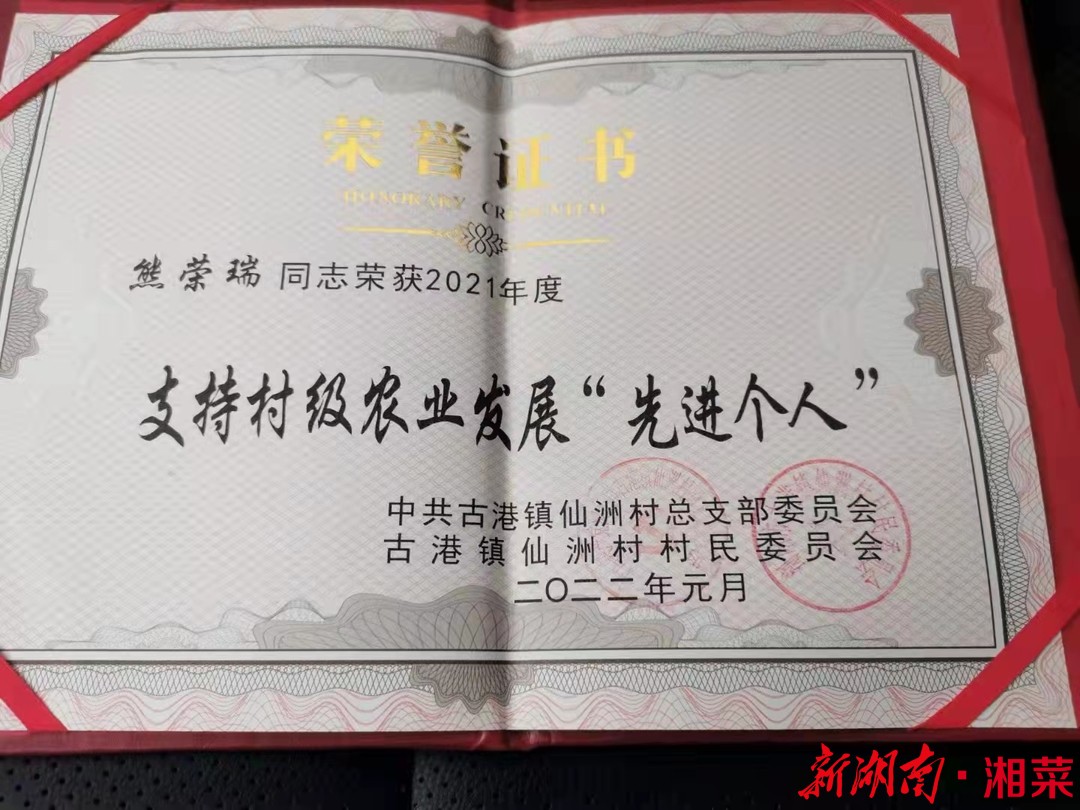 荣誉证书
HONORARY CREDENTIAL
熊荣瑞 同志荣获2021年度
支持村级农业发展“先进个人”
中共古港镇仙洲村总支部委员会
古港镇仙洲村村民委员会
二〇二二年元月
新湖南·湘菜